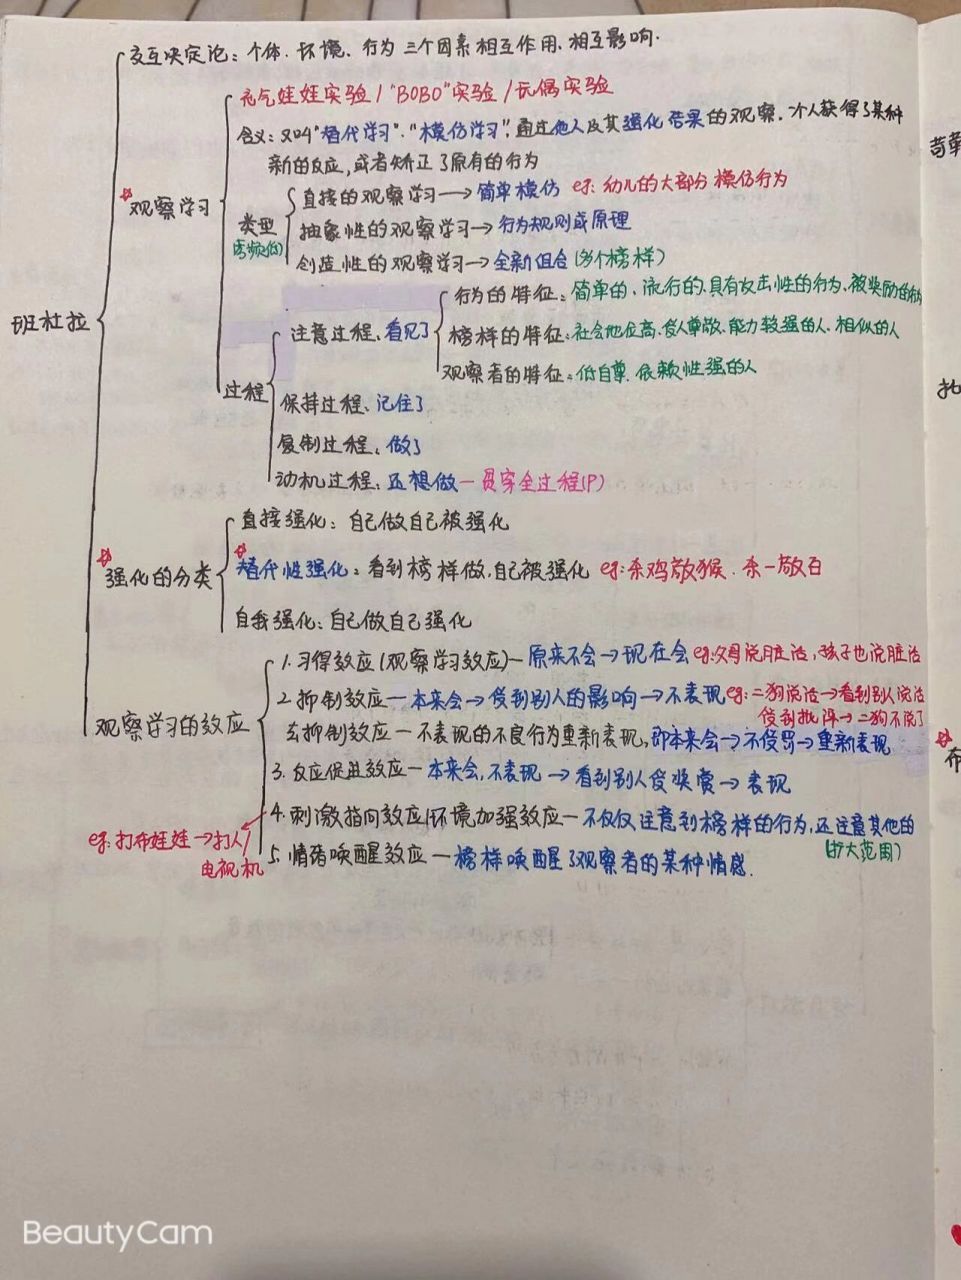 交互决定论：个体、环境、行为 三个因素相互作用、相互影响.
充气娃娃实验 / "BOBO"实验 / 玩偶实验
含义：又叫"替代学习"."模仿学习",通过他人及其强化结果的观察，个人获得了某种
新的反应,或者矫正了原有的行为
观察学习
类型
直接的观察学习→简单模仿 eg: 幼儿的大部分模仿行为
抽象性的观察学习→行为规则或原理
创造性的观察学习→全新组合(多个榜样)
班杜拉
过程
注意过程、看见了
行为的特征：简单的、流行的、具有攻击性的行为、被奖励的行为
榜样的特征：社会地位高、受人尊敬、能力较强的人、相似的人
观察者的特征：低自尊、依赖性强的人
保持过程、记住了
复制过程、做了
动机过程：还想做—贯穿全过程(P)
强化的分类
直接强化：自己做自己被强化
替代性强化：看到榜样做,自己被强化 eg: 杀鸡儆猴、杀一儆百
自我强化：自己做自己强化
观察学习的效应
1. 习得效应(观察学习效应)—原来不会→现在会 eg:父母说脏话,孩子也说脏话
2. 抑制效应—本来会→受到别人的影响→不表现 eg: 二狗说话→看到别人说话
受到批评→二狗不说了
去抑制效应—不表现的不良行为重新表现,即本来会→不受罚→重新表现
3. 反应促进效应—本来会,不表现→看到别人受奖赏→表现
4. 刺激指向效应/环境加强效应—不仅仅注意到榜样的行为,还注意其他的
(扩大范围)
eg: 打布娃娃→打人/
电视机
5. 情绪唤醒效应—榜样唤醒了观察者的某种情感.
荀
布
BeautyCam